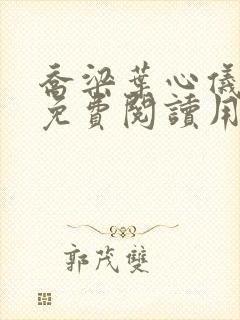 喬梁葉心儀
免費閱讀用
郭茂雙